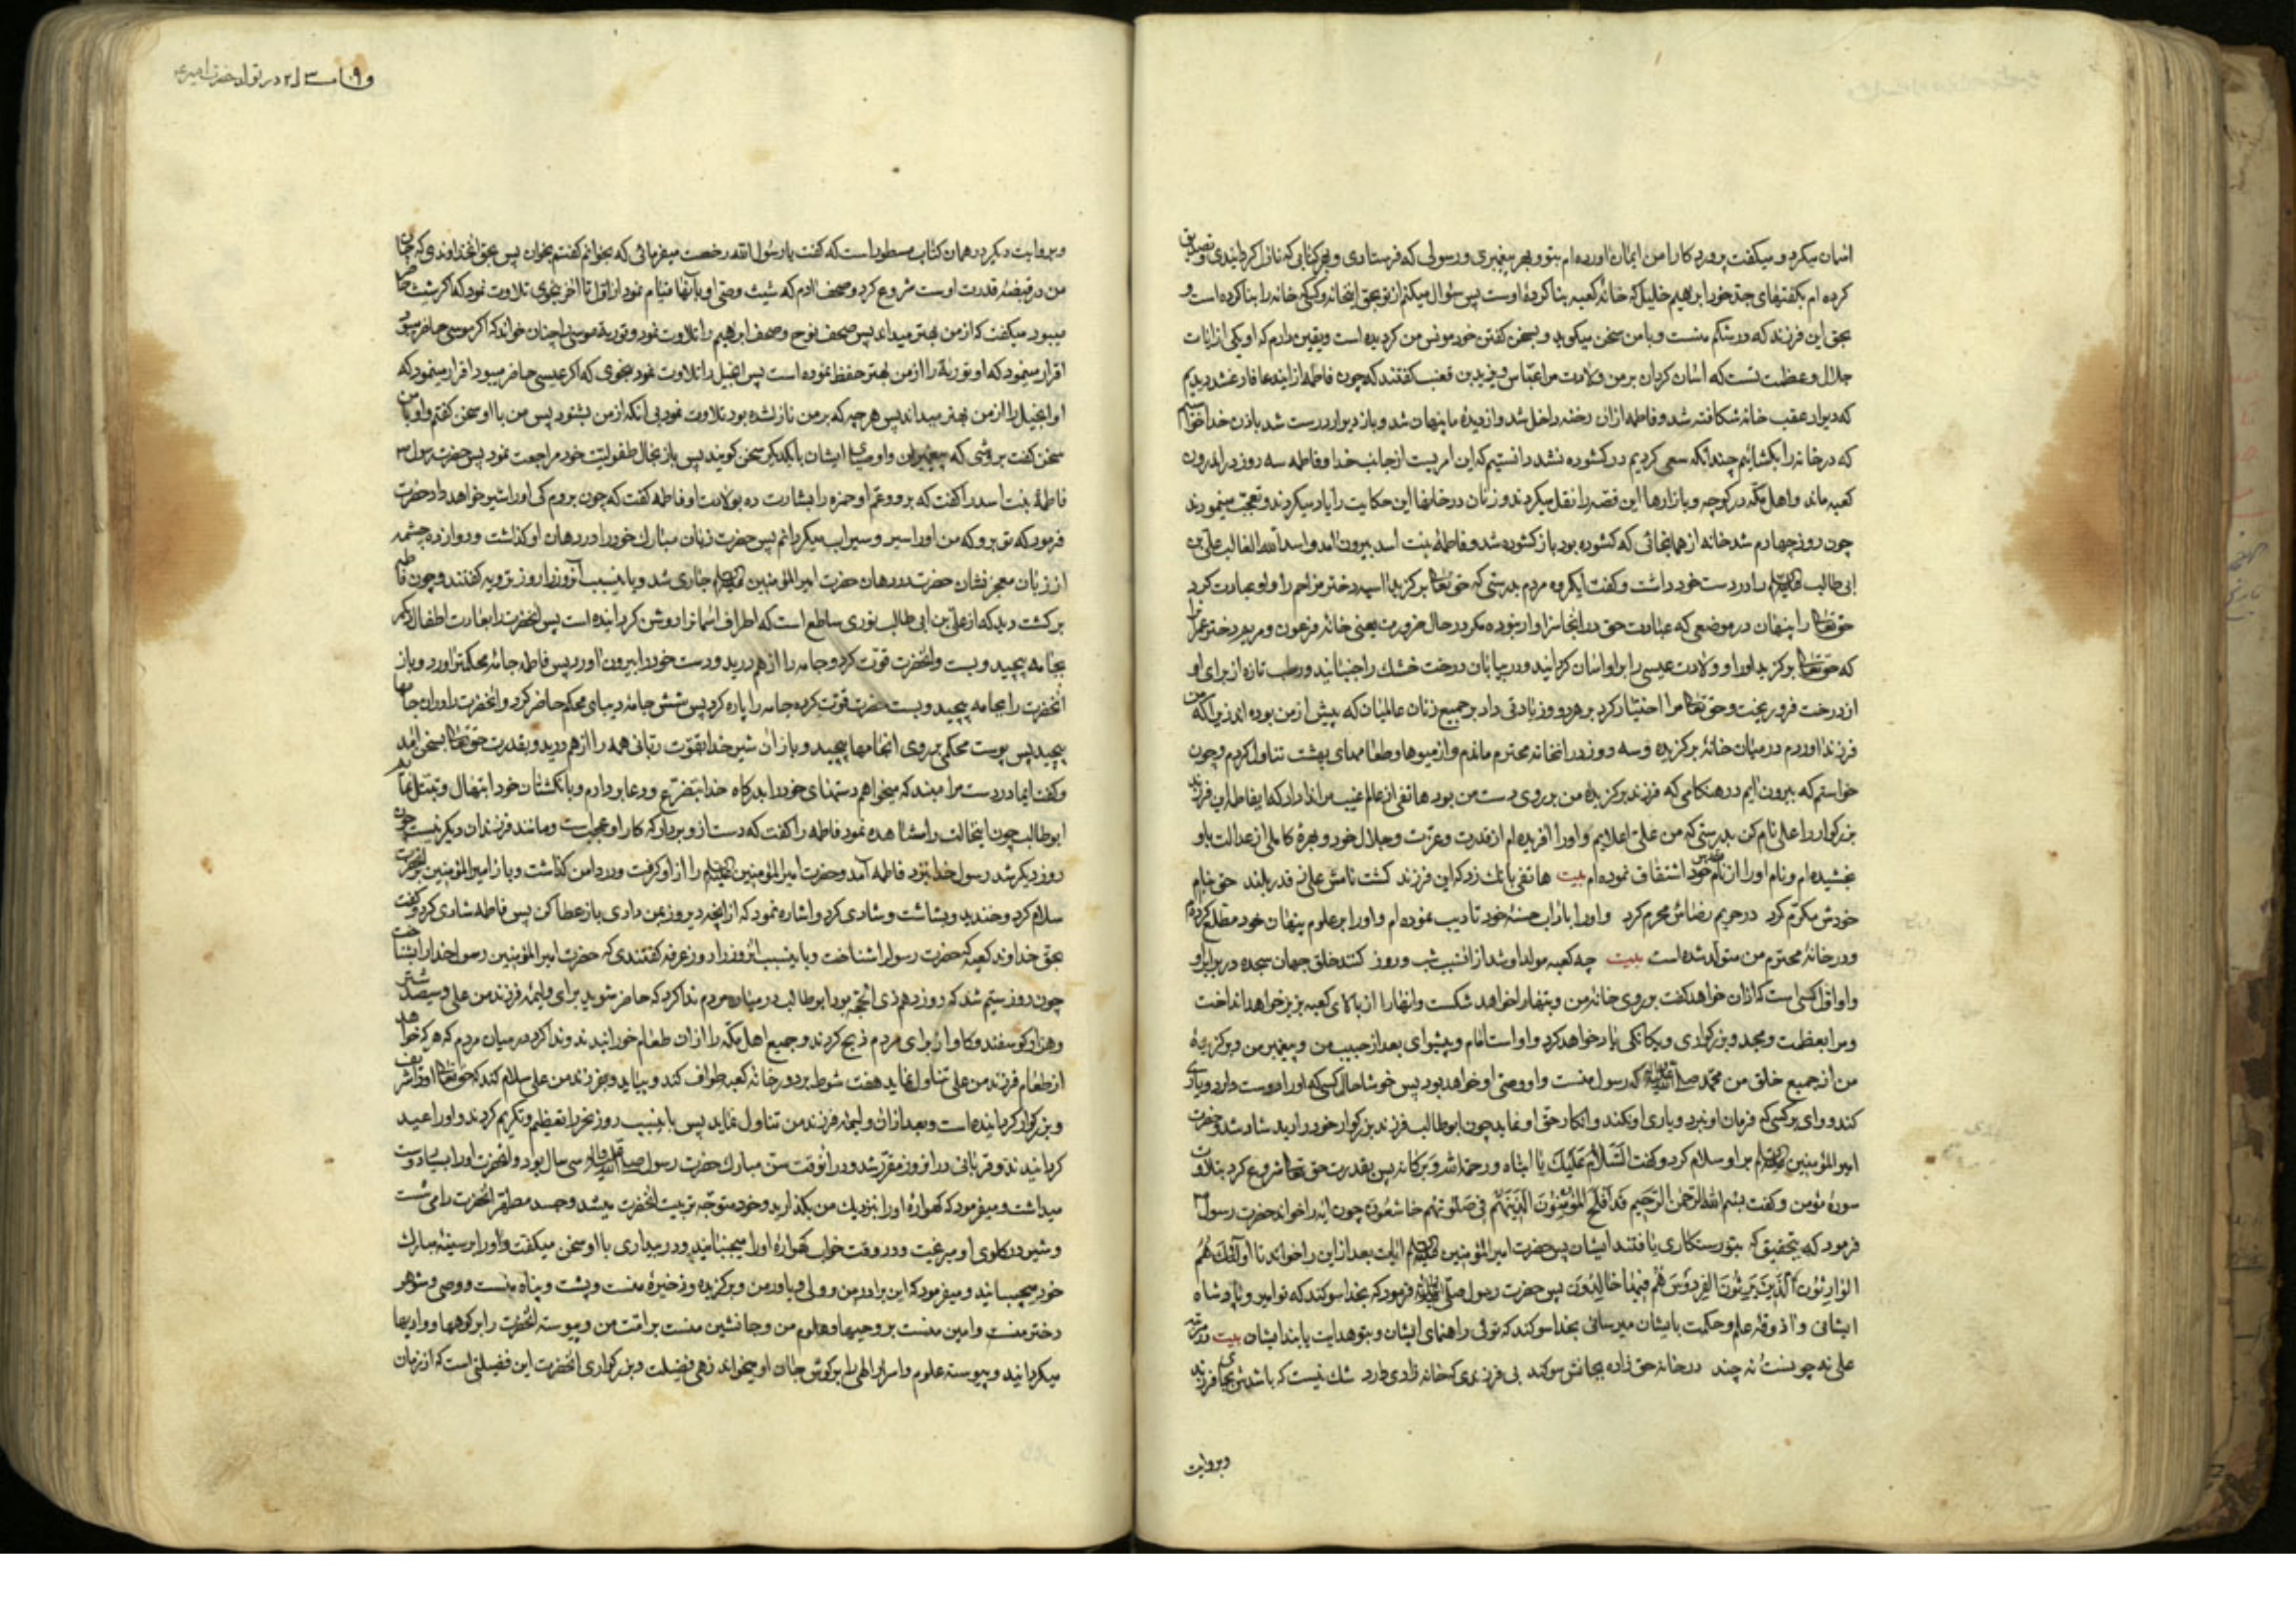 اسمان میکرد و میکفت پروردکارا من ایمان اورده ام بتو و بهر پیغمبری و رسولی که فرستادی و بهر کتابی که نازل کردانیدی و تصدیق
کرده ام بکفتهای جد خود ابرهیم خلیل که خانه کعبه بنا کرده اوست پس سؤال میکنم از تو بحق اینخانه و کسی که خانه را بنا کرده است و
بحق این فرزند که در شکم منست و با من سخن میکوید و بسخن کفتن خود مونس من کردیده است و یقین دارم که او یکی از ایات
جلال و عظمت تست که اسان کردان بر من ولادت مرا عباس و یزید بن قعنب کفتند که چون فاطمه از این دعا فارغ شد دیدیم
که دیوار عقب خانه شکافته شد و فاطمه ازان رخنه داخل شد و از دیده ما پنهان شد و باز دیوار درست شد باذن خدا خواستیم
که در خانه را بکشائیم چندانکه سعی کردیم در کشوده نشد دانستیم که این امریست از جانب خدا و فاطمه سه روز در اندرون
کعبه ماند و اهل مکه در کوچه و بازارها این قصه را نقل میکردند و زنان در خانها این حکایت را یاد میکردند و تعجب مینمودند
چون روز چهارم شد خانه از همانجائی که کشوده بود باز کشوده شد و فاطمه بنت اسد بیرون امد و اسد الله الغالب علی بن
ابی طالب را در دست خود داشت و کفت ایکروه مردم بدرستی که حق تعالی برکزید اسیه دختر مزاحم را و او عبادت کرد
حق تعالی را پنهان در موضعی که عبادت حق در انجا سزاوار نبوده مکر در حال ضرورت یعنی خانه فرعون و مریم دختر عمران را
که حق تعالی برکزید او را و ولادت عیسی را بر او اسان کردانید و در بیابان درخت خشک را جنبانید و رطب تازه از برای او
از درخت فرو ریخت و حق تعالی مرا اختیار کرد بر هر دو و زیادتی داد بر جمیع زنان عالمیان که پیش از من بوده اند زیرا که من
فرزند اوردم در میان خانه برکزیده و سه روز در انخانه محترم ماندم و از میوها و طعامهای بهشت تناول کردم و چون
خواستم که بیرون ایم در هنکامی که فرزند برکزیده من بر روی دست من بود هاتفی از عالم غیب مرا ندا داد که ایفاطمه این فرزند
بزرکوار را علی نام کن بدرستی که من علی اعلایم و او را افریده ام از قدرت و عزت و جلال خود و بهره کامل از عدالت باو
بخشیده ام و نام او را از نام مقدس خود اشتقاق نموده ام بیت هاتفی بانک زد که این فرزند کشت نامش علی ز قدر بلند حق بنام
خودش مکرم کرد در حریم رضاش محرم کرد و او را باداب حسنه خود تادیب نموده ام و او را بر علوم پنهان خود مطلع کرده ام
و در خانه محترم من متولد شده است بیت چه کعبه مولد او شد از انسبب شب و روز کنند خلق جهان سجده در برابر او
و او اول کسی است که اذان خواهد کفت بر روی خانه من و بتها را خواهد شکست و انها را از بالای کعبه بزیر خواهد انداخت
و مرا بعظمت و مجد و بزرکواری و یکانکی یاد خواهد کرد و اوست امام و پیشوای بعد از حبیب من و پیغمبر من و برکزیده
من از جمیع خلق من محمد صلی الله علیه و اله که رسول منست و او وصی او خواهد بود پس خوشا حال کسی که او را دوست دارد و یاری
کند و وای بر کسی که فرمان او نبرد و یاری او نکند و انکار حق او نماید چون ابوطالب فرزند بزرکوار خود را دید شاد شد و حضرت
امیرالمؤمنین بر او سلام کرد و کفت السَّلامُ عَلَیكَ یا ابتاه ورحمة الله وبرکاته پس بقدرت حق تعالی شروع کرد بتلاوت
سوره مؤمن و کفت بسم الله الرحمن الرحیم قد افلح المؤمنون الذینهم فی صلوتهم خاشعون چون ایه را خواند حضرت رسول
فرمود که بتحقیق که بتو رستکاری یافتند ایشان پس حضرت امیرالمؤمنین ایات بعد از این را خواند تا اولئك هم
الوارثون الذین یرثون الفردوس هم فیها خالدون پس حضرت رسول صلی الله علیه و اله فرمود که بخدا سوکند که تو امیر و پادشاه
ایشانی و اذوقه علم و حکمت بایشان میرسانی بخدا سوکند که توئی راهنمای ایشان و بتو هدایت یابند ایشان بیت
در خانه حق زاده بجانش سوکند بی فرزندی که خانه زادی دارد شک نیست که باشدش بجای فرزند
وبروایت
در تولد حضرت امیر ع
و بروایت دیکر در همان کتاب مسطور است که کفت یا رسول الله رخصت میفرمائی که بخوانم کفتم بخوان پس بحق انخداوندی که جان
من در قبضه قدرت اوست شروع کرد و صحف ادم که شیث وصی او بانها قیام نمود از اول تا اخر بنحوی تلاوت نمود که اکر شیث حاضر
میبود میکفت که از من بهتر میداند پس صحف نوح و صحف ابراهیم را تلاوت نمود و توریة موسی را چنان خواند که اکر موسی حاضر میبود
اقرار مینمود که او توریة را از من بهتر حفظ نموده است پس انجیل را تلاوت نمود بنحوی که اکر عیسی حاضر میبود اقرار مینمود که
او انجیل را از من بهتر میداند پس هر چه که بر من نازل شده بود تلاوت نمود بی آنکه از من بشنود پس من با او سخن کفتم و او با من
سخن کفت بروشی که پیغمبران و اوصیای ایشان با یکدیکر سخن کویند پس باز بحال طفولیت خود مراجعت نمود پس حضرت رسول ص
فاطمه بنت اسد را کفت که برو و عم او حمزه را بشارت ده بولادت او فاطمه کفت که چون بروم کی او را شیر خواهد داد حضرت
فرمود که تو برو که من او را سیر و سیراب میکردانم پس حضرت زبان مبارک خود را در دهان او کذاشت و دوازده چشمه
از زبان معجز نشان حضرت در دهان حضرت امیرالمؤمنین جاری شد و باینسبب آنروز را روز ترویه کفتند و چون فاطمه
برکشت دید که از علی بن ابی طالب نوری ساطع است که اطراف اسمانرا روشن کردانیده است پس انحضرت را بعادت اطفال دیکر
بجامه پیچید و بست و انحضرت قوت کرد و جامه را از هم درید و دست خود را بیرون اورد پس فاطمه جامه محکمتر اورد و باز
انحضرت را بجامه پیچید و بست حضرت قوت کرده جامه را پاره کرد پس شش جامه دیبای محکم حاضر کرد و انحضرت را در ان جامها
پیچید پس پوست محکمی بر روی انجامها پیچید و باز ان شیر خدا بقوت ربانی همه را از هم درید و بقدرت حق تعالی بسخن امد
و کفت ایمادر دست مرا مبند که میخواهم دستهای خود را بدرکاه خدا بتضرع و دعا بردارم و بانکشتان خود ابتهال و تبتل نمایم
ابوطالب چون اینحالت را مشاهده نمود فاطمه را کفت که دست از او بردار که کار او عجیب است و مانند فرزندان دیکر نیست چون
روز دیکر شد رسول خدا بنزد فاطمه آمد و حضرت امیرالمؤمنین را از او کرفت و در دامن کذاشت و باز امیرالمؤمنین بر انحضرت
سلام کرد و خندید و بشاشت و شادی کرد و اشاره نمود که از انچه دیروز بمن دادی باز عطا کن پس فاطمه شادی کرد و کفت
بحق خداوند کعبه که حضرت رسول را شناخت و باینسبب انروز را روز عرفه کفتندی که حضرت امیرالمؤمنین رسول خدا را بشناخت
چون روز سیّم شد که روز دهم ذی الحجه بود ابوطالب در میان مردم ندا کرد که حاضر شوید برای ولیمه فرزند من علی و سیصد شتر
و هزار کوسفند و کاو از برای مردم ذبح کردند و جمیع اهل مکه را از ان طعام خورانیدند و ندا کرد در میان مردم که هر که خواهد
از طعام فرزند من علی تناول نماید هفت شوط بر دور خانه کعبه طواف کند و بیاید و بفرزند من علی سلام کند که حق تعالی او را شریف
و بزرکوار کردانیده است و بعد ازان ولیمه فرزند من تناول نماید پس باینسبب روز نحر را تعظیم و تکریم کردند و او را عید
کردانیدند و قربانی در انروز مقرر شد و در انوقت سن مبارک حضرت رسول صلی الله علیه و اله سی سال بود و انحضرت او را بسیار دوست
میداشت و میفرمود که کهواره او را بنزدیک من بکذارید و خود متوجه تربیت انحضرت میشد و جسد مطهر انحضرت را می شست
و شیر در کلوی او میریخت و در وقت خواب کهواره او را میجنبانید و در بیداری با او سخن میکفت و او را بر سینه مبارک
خود میچسبانید و میفرمود که این برادر من و ولی و یاور من و برکزیده و ذخیره منست و پشت و پناه منست و وصی و شوهر
دختر منست و امین منست بر وحیها و علوم من و جانشین منست بر امت من و پیوسته انحضرت را بر کوهها و وادیها
میکردانید و پیوسته علوم و اسرار الهی را بر کوش جان او میخواند زهی فضیلت و بزرکواری انحضرت این فضیلتی است که از زمان